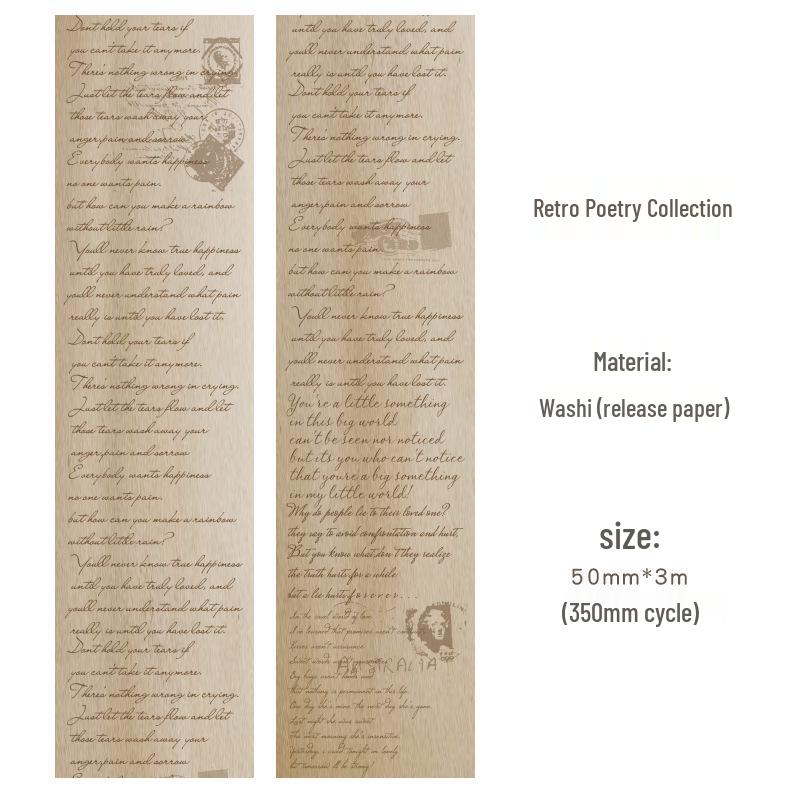 Dont hold your tears if
you can't take it anymore.
There's nothing wrong in crying.
Just let the tears flow and let
those tears wash away your
anger, pain and sorrow
Everybody wants happiness
no one wants pain.
but how can you make a rainbow
without little rain?
Youll never know true happiness
until you have truly loved, and
youll never understand what pain
really is until you have lost it.
Dont hold your tears if
you can't take it anymore.
There's nothing wrong in crying.
Just let the tears flow and let
those tears wash away your
anger, pain and sorrow
Everybody wants happiness
no one wants pain.
but how can you make a rainbow
without little rain?
Youll never know true happiness
until you have truly loved, and
youll never understand what pain
really is until you have lost it.
Dont hold your tears if
you can't take it anymore.
There's nothing wrong in crying.
Just let the tears flow and let
those tears wash away your
anger, pain and sorrow
until you have truly loved, and
youll never understand what pain
really is until you have lost it.
Dont hold your tears if
you can't take it anymore.
There's nothing wrong in crying.
Just let the tears flow and let
those tears wash away your
anger, pain and sorrow
Everybody wants happiness
no one wants pain.
but how can you make a rainbow
without little rain?
Youll never know true happiness
until you have truly loved, and
youll never understand what pain
really is until you have lost it.
You're a little something
in this big world
can't be seen nor noticed
but its you who can't notice
that youre a big something
in my little world!
Why do people lie to their loved one?
they say to avoid confrontation and hurt,
But you know what,don't they realize
the truth hurts for a while
but a lie hurts forever....
In the cruel world of love
I've learned that promises aren't
Kisses aren't assurance
Sweet words aren't
Big hugs aren't
that nothing is permanent in this life.
One day she's mine the next day she's gone.
Last night she was sweet
The next morning she's insensitive.
Yesterday, i cried tonight im lonely
but tomorrow ill be strong!
AUSTRALIA
Retro Poetry Collection
Material:
Washi (release paper)
size:
50mm*3m
(350mm cycle)